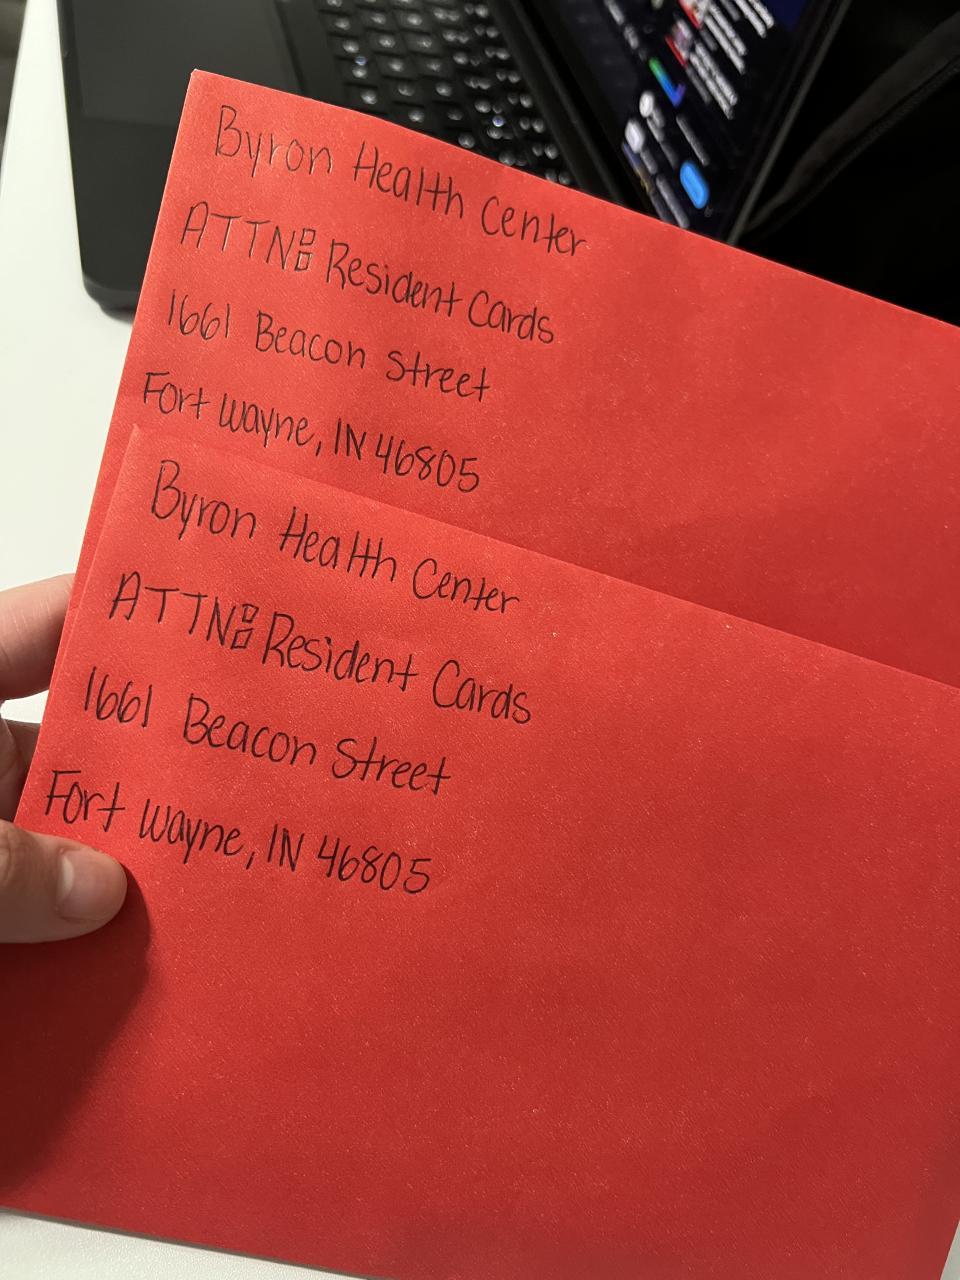 Byron Health Center
ATTN: Resident Cards
1661 Beacon Street
Fort Wayne, IN 46805
Byron Health Center
ATTN: Resident Cards
1661 Beacon Street
Fort Wayne, IN 46805